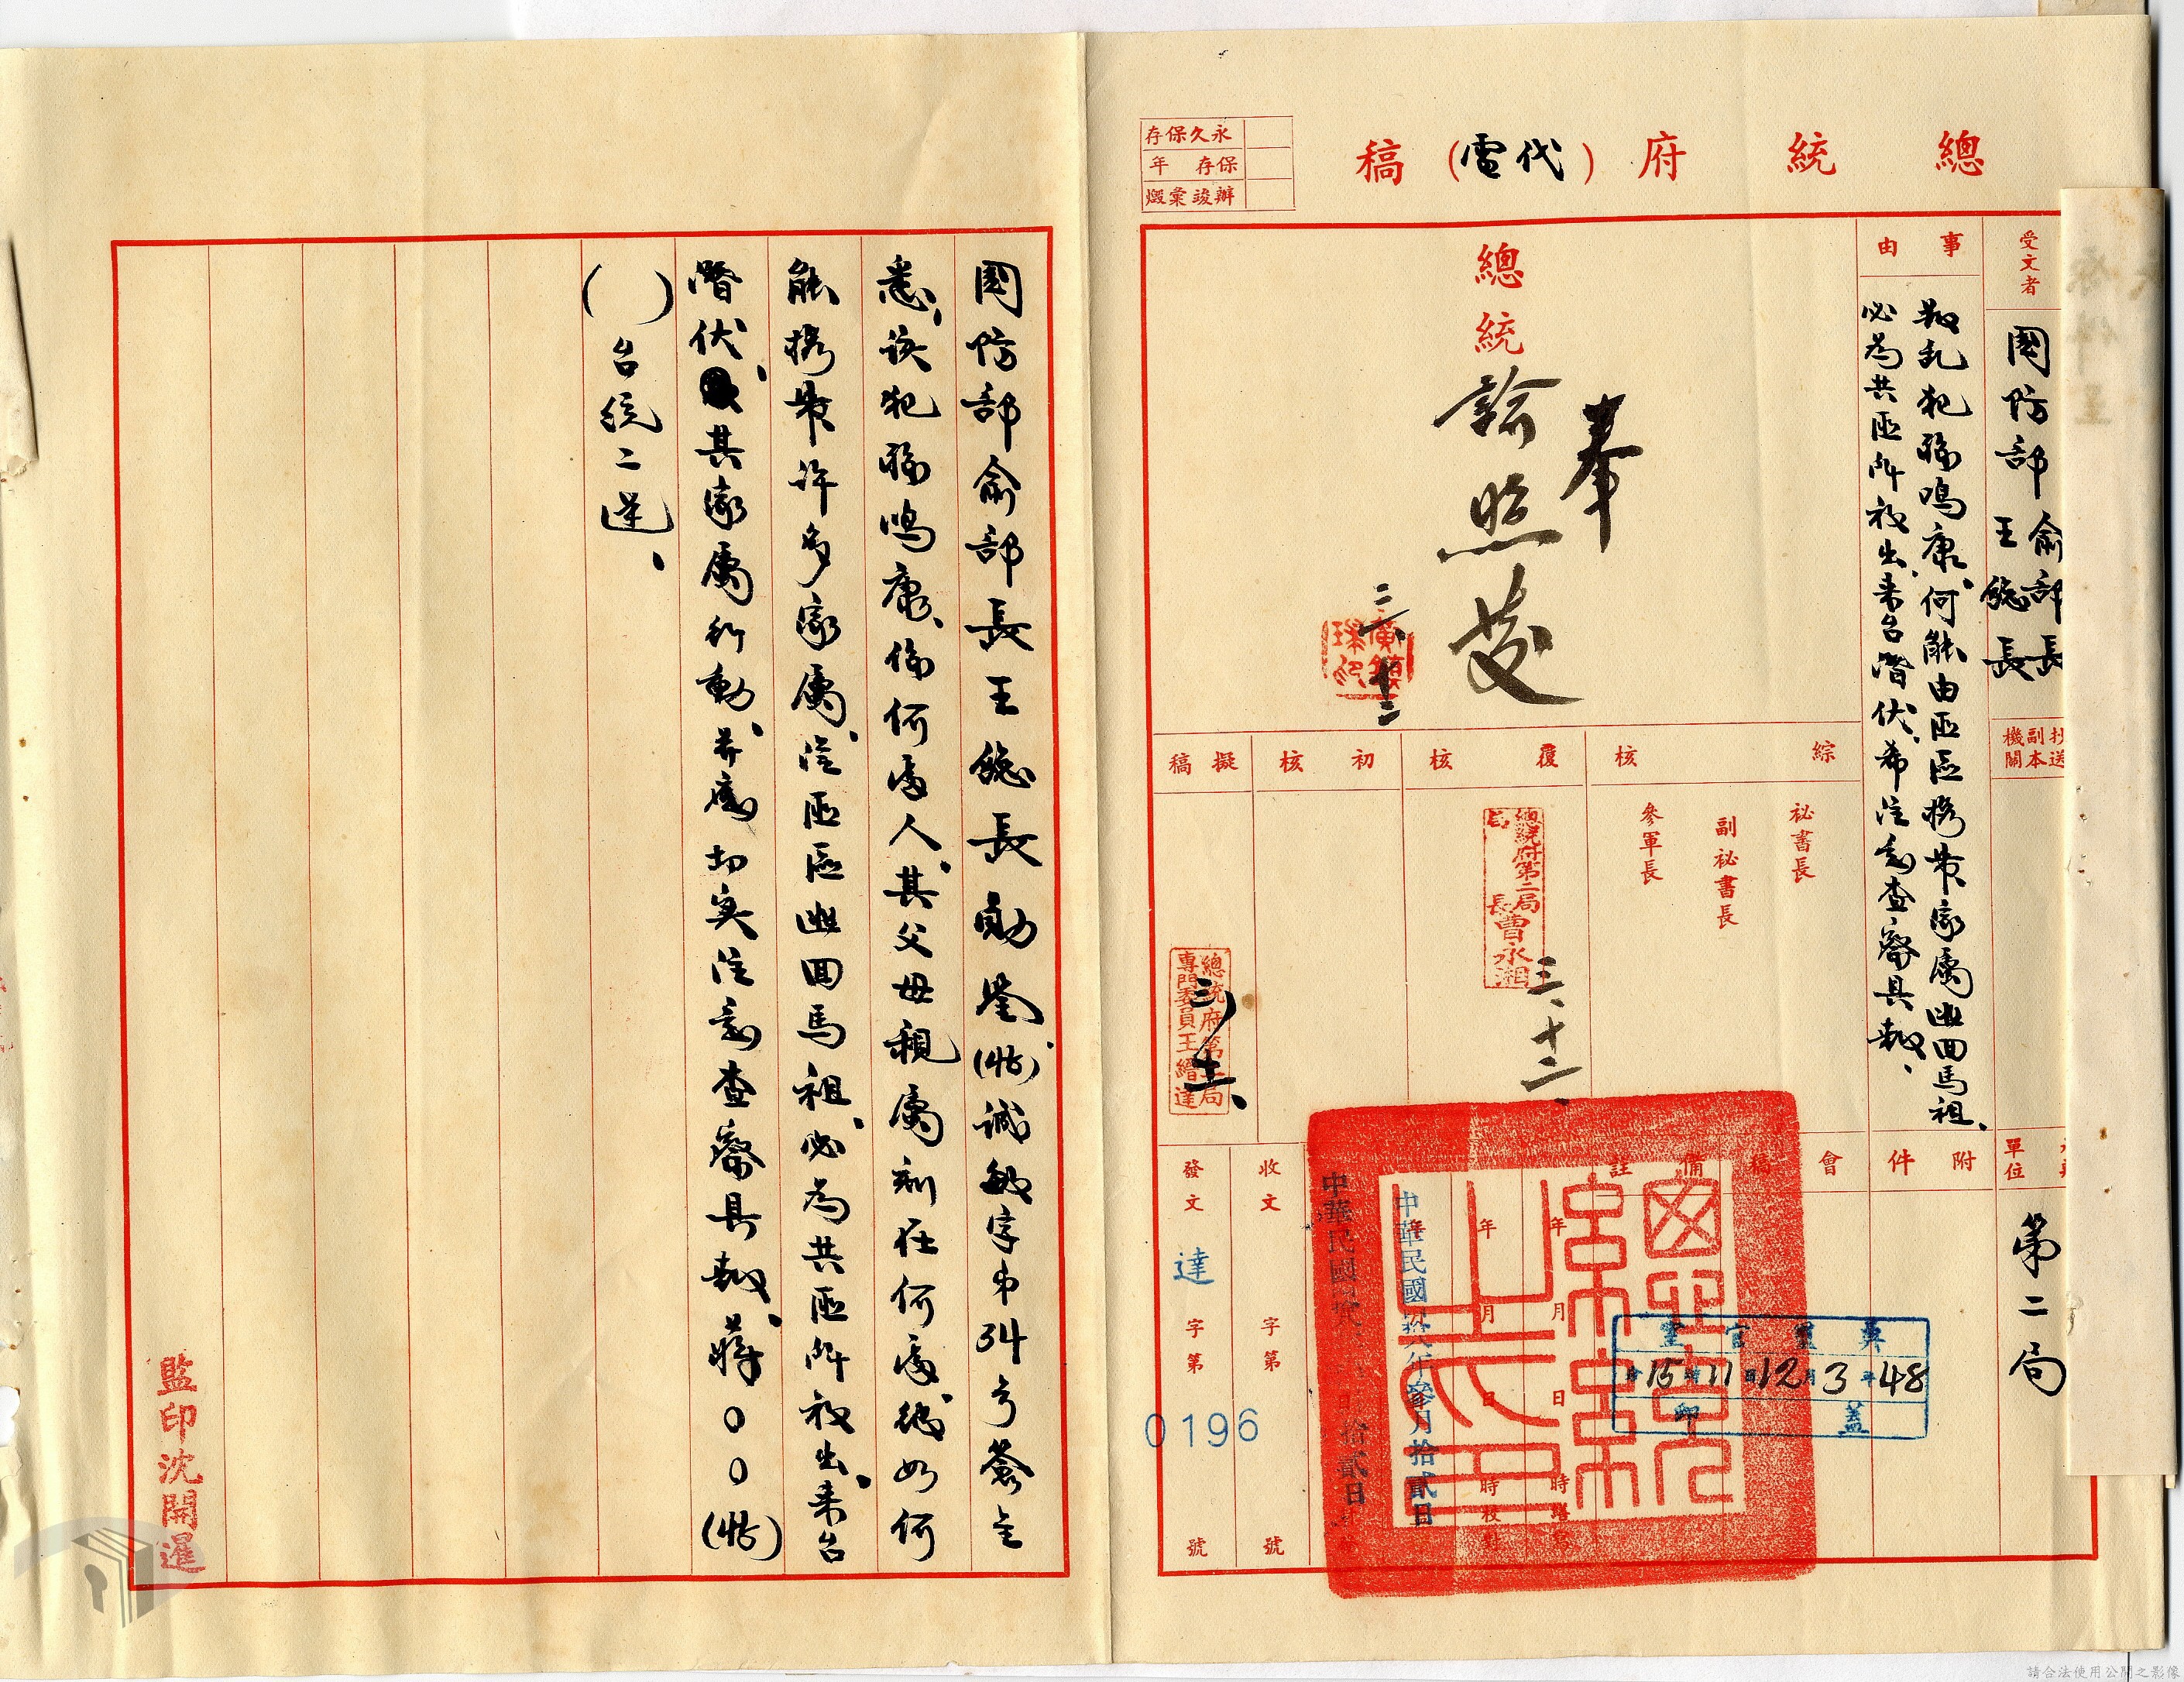 總統府（代電）稿
永久保存
保存 年
辦竣彙燬
受文者
國防部俞部長
王總長
抄送副本機關
單位
第二局
事由
叛乱犯 鳴康、何能由匪區携带家屬出回馬祖、
必為共匪所派出、来台潛伏、希注意查察具報、
附件
總統
奉
諭照發
三、十三
綜核
秘書長
副秘書長
參軍長
覆核
總統府第二局局長曹永湘
三、十二、
初核
擬稿
總統府第二局專門委員王縉達
會稿
備註
年 月 日 時繕寫
年 月 日 時校對
中華民國肆八年參月拾貳日
總統之印
48年3月12日11時15分
蓋印
收文 字第 號
發文 達字第 號
0196
國防部俞部長王總長勛鑒(特)誠敏字第34号簽呈
悉、該犯 鳴康、係何處人、其父母親屬刻在何處、彼如何
能携带許多家屬、從匪區出回馬祖、必為共匪所派出、来台
潛伏、其家屬行動、并應切实注意查察具報、蔣○○(特)
( )台統二達、
監印沈開暹
請合法使用公開之影像